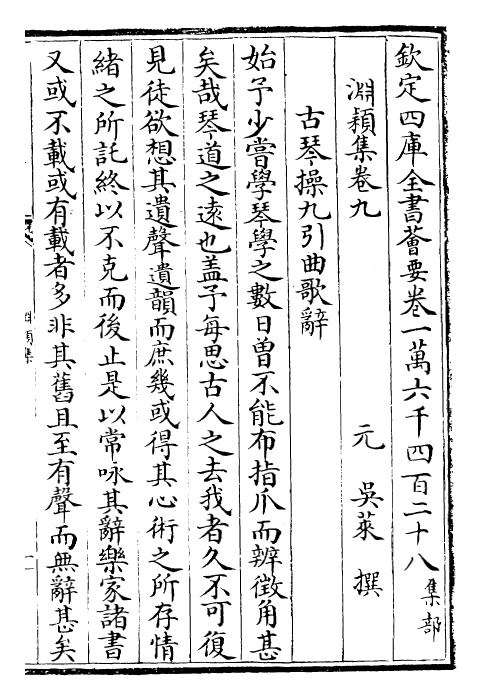 欽定四庫全書薈要卷一萬六千四百二十八 集部
淵穎集卷九
元 吳萊 撰
古琴操九引曲歌辭
始予少嘗學琴學之數日曾不能布指爪而辨徵角甚
矣哉琴道之逺也盖予每思古人之去我者久不可復
見徒欲想其遺聲遺韻而庶幾或得其心術之所存情
緒之所託終以不克而後止是以常咏其辭樂家諸書
又或不載或有載者多非其舊且至有聲而無辭甚矣